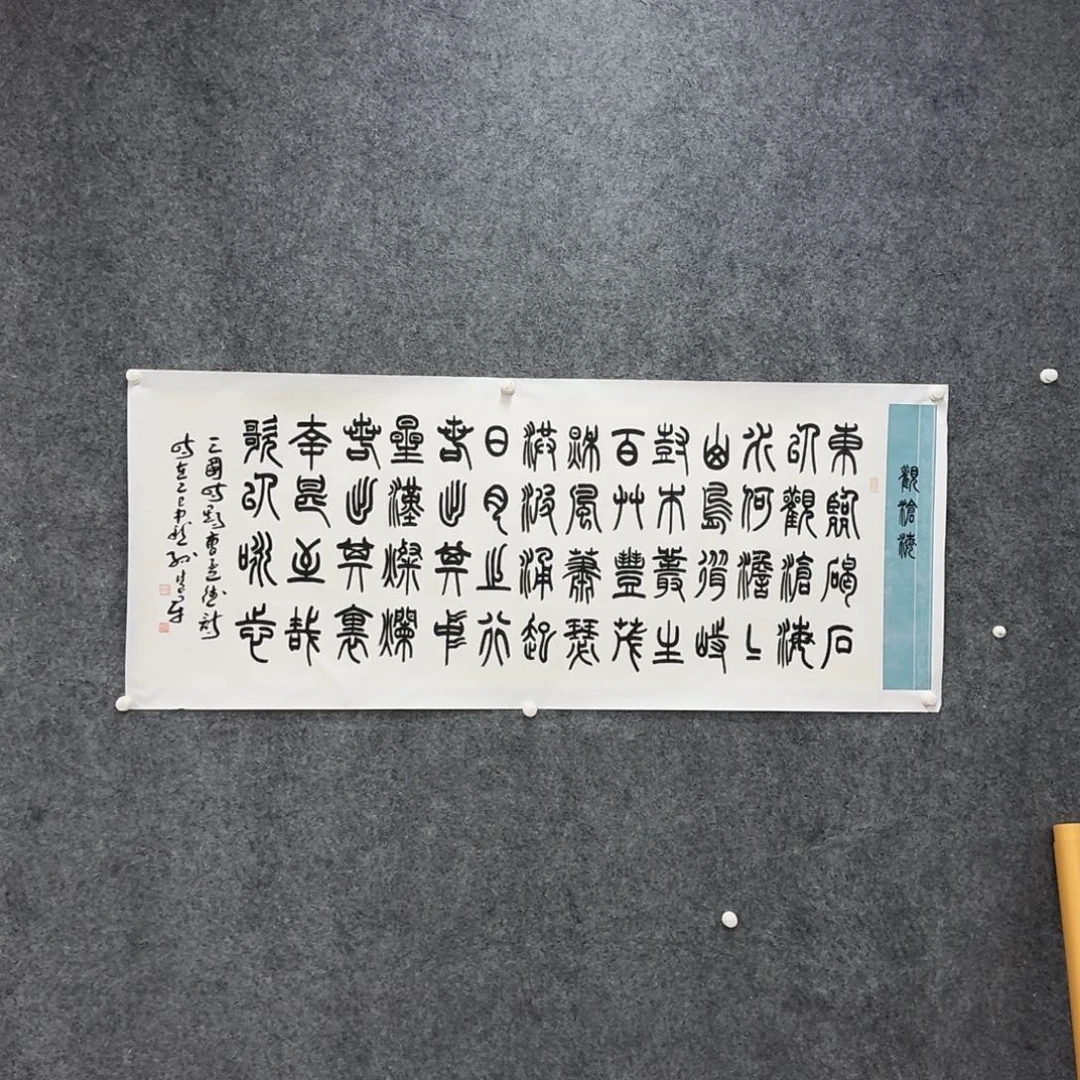 觀滄海
東臨碣石
以觀滄海
水何澹〻
山島竦峙
樹木叢生
百艸豐茂
秋風蕭瑟
洪波涌起
日月之行
若出其中
星漢燦爛
若出其裏
幸甚至哉
歌以詠志
三國時期曹孟德詩
時在乙巳中秋